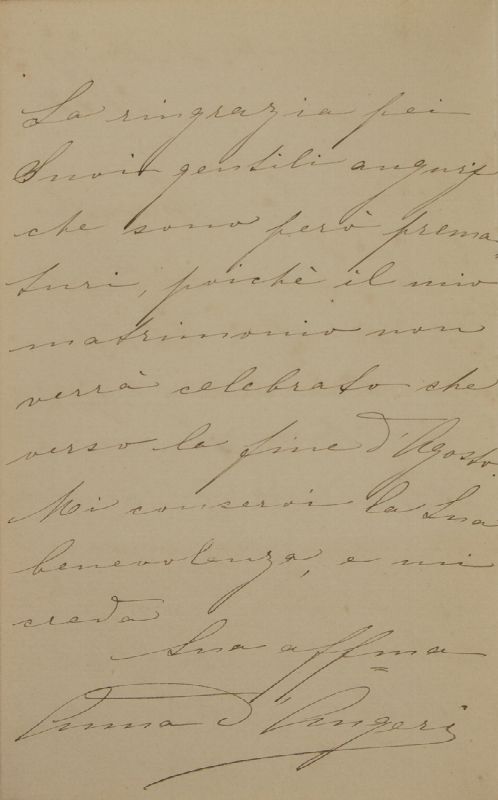 La ringrazia pei
Suoi gentili augurj
che sono però prema=
turi, poichè il mio
matrimonio non
verrà celebrato che
verso la fine d'Agosto.
Mi conservi la Sua
benevolenza, e mi
creda
Sua affma
Anna d'Angeri